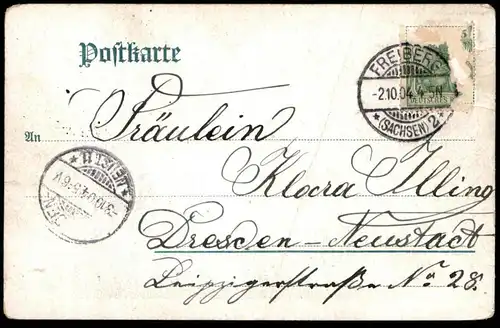 Postkarte
FREIBERG
-2.10.04.
*(SACHSEN) 2*
An
Fräulein
Klara Illing
Dresden-Neustadt
Leipzigerstraße No 28.